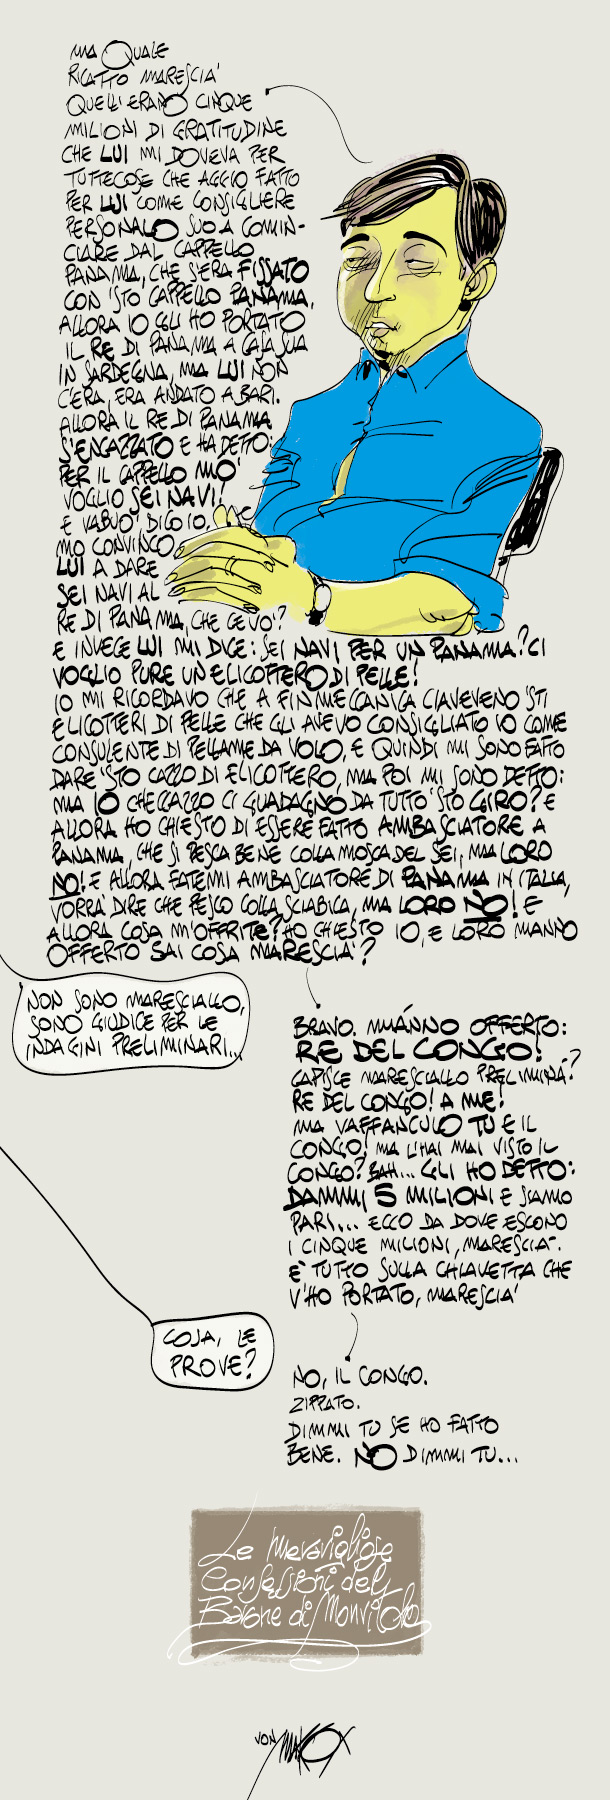 MA QUALE
RICATTO MARESCIA'
QUELLI ERANO CINQUE
MILIONI DI GRATITUDINE
CHE LUI MI DOVEVA PER
TUTTECOSE CHE AGGIO FATTO
PER LUI COME CONSIGLIERE
PERSONALO SUO A COMIN-
CIARE DAL CAPPELLO
PANAMA, CHE S'ERA FISSATO
CON 'STO CAPPELLO PANAMA,
ALLORA IO GLI HO PORTATO
IL RE DI PANAMA A CASA SUA
IN SARDEGNA, MA LUI NON
C'ERA, ERA ANDATO A BARI.
ALLORA IL RE DI PANAMA
S'ENCAZZATO E HA DETTO:
PER IL CAPPELLO MO'
VOGLIO SEI NAVI!
E VABUO' DICO IO,
MO CONVINCO
LUI A DARE
SEI NAVI AL
RE DI PANAMA, CHE CEVO'?
E INVECE LUI MI DICE: SEI NAVI PER UN PANAMA? CI
VOGLIO PURE UN ELICOTTERO DI PELLE!
IO MI RICORDAVO CHE A FINMECCANICA CIAVEVENO 'STI
ELICOTTERI DI PELLE CHE GLI AVEVO CONSIGLIATO IO COME
CONSULENTE DI PELLAME DA VOLO, E QUINDI MI SONO FATTO
DARE 'STO CAZZO DI ELICOTTERO, MA POI MI SONO DETTO:
MA IO CHECCAZZO CI GUADAGNO DA TUTTO 'STO GIRO? E
ALLORA HO CHIESTO DI ESSERE FATTO AMBASCIATORE A
PANAMA, CHE SI PESCA BENE COLLA MOSCA DEL SEI, MA LORO
NO! E ALLORA FATEMI AMBASCIATORE DI PANAMA IN ITALIA,
VORRA' DIRE CHE PESCO COLLA SCIABICA, MA LORO NO! E
ALLORA COSA M'OFFRITE? HO CHIESTO IO, E LORO MANNO
OFFERTO SAI COSA MARESCIA'?
NON SONO MARESCIALLO,
SONO GIUDICE PER LE
INDAGINI PRELIMINARI...
BRAVO. MUÀNNO OFFERTO:
RE DEL CONGO!
CAPISCE MARESCIALLO PRELIMINA'?
RE DEL CONGO! A ME!
MA VAFFANCULO TU E IL
CONGO! MA L'HAI MAI VISTO IL
CONGO? BAH... GLI HO DETTO:
DAMMI 5 MILIONI E SIAMO
PARI... ECCO DA DOVE ESCONO
I CINQUE MILIONI, MARESCIA'.
E' TUTTO SULLA CHIAVETTA CHE
V'HO PORTATO, MARESCIA'
COSA, LE
PROVE?
NO, IL CONGO.
ZIPPATO.
DIMMI TU SE HO FATTO
BENE. NO DIMMI TU...
Le meravigliose
Confessioni del
Barone di Monvitolo
VON MAKOX